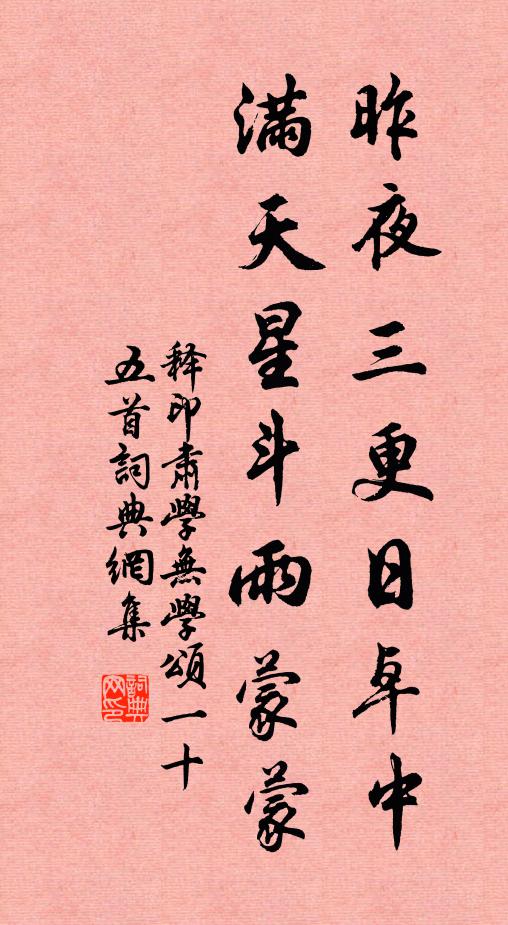 昨夜三更日卓中
滿天星斗雨蒙蒙
释印肅學無學頌一十
五首詞典網集
詞典網印